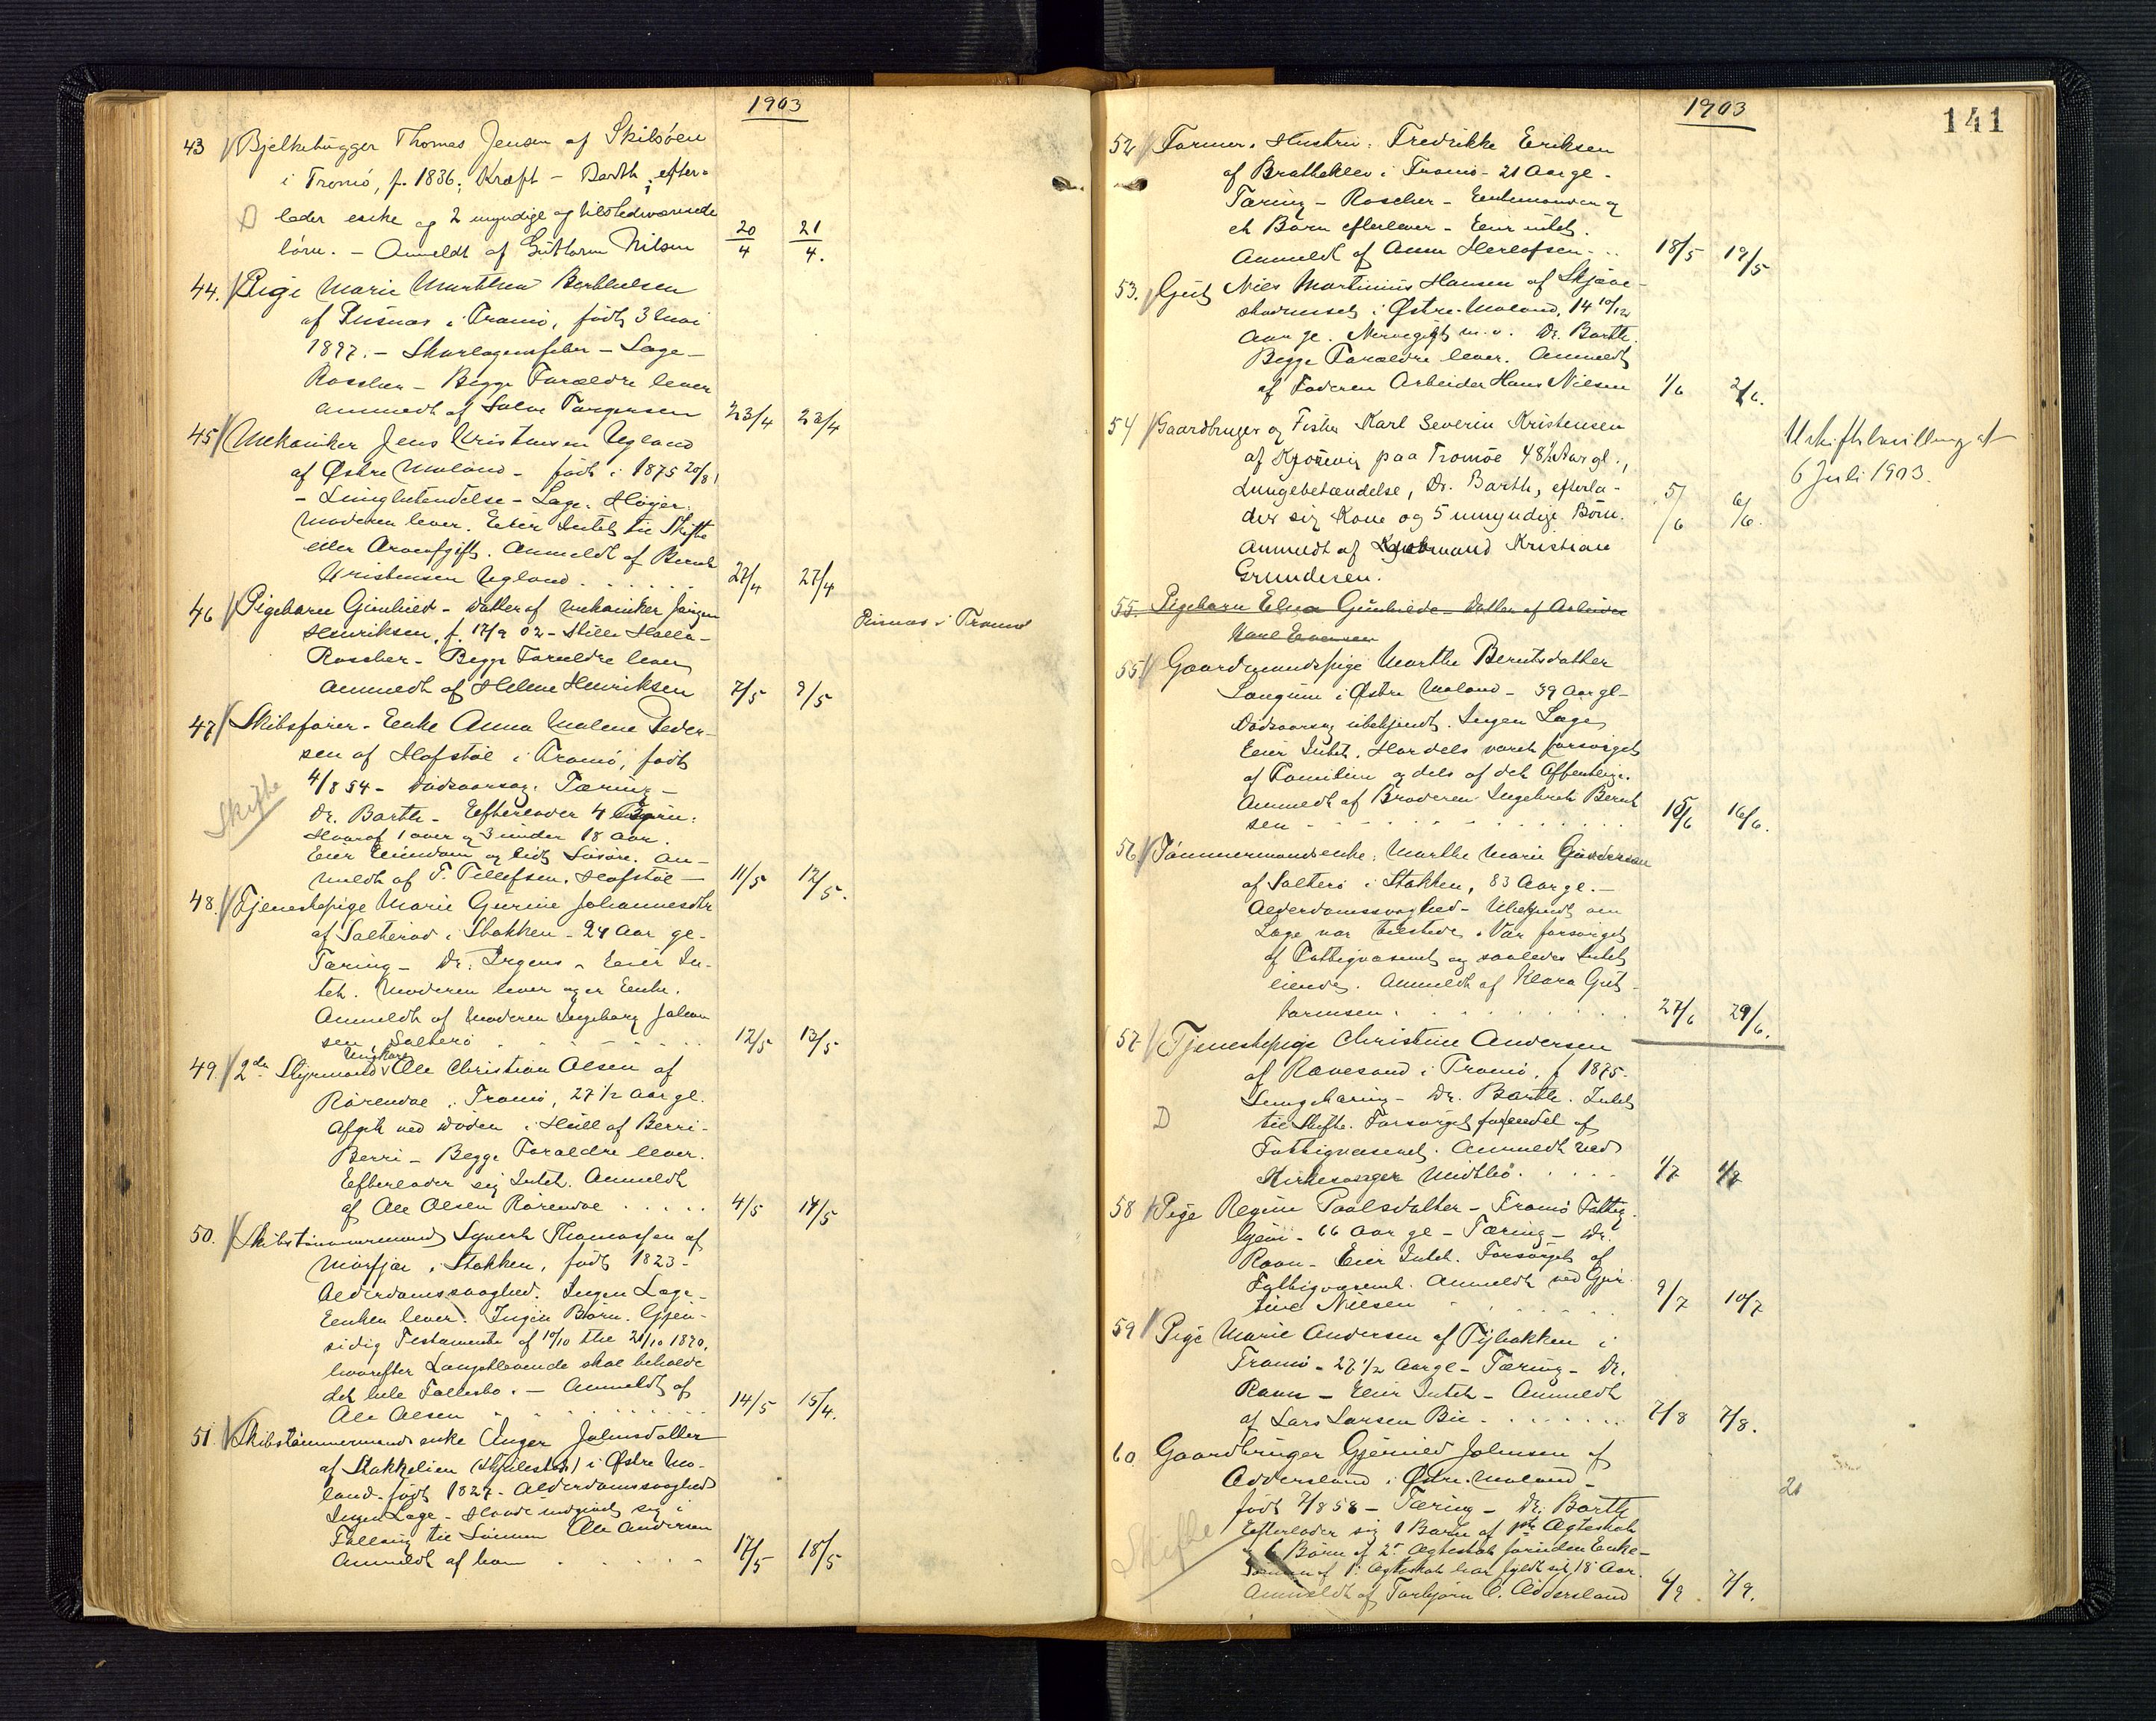 1903
43 Bjelkehugger Thomas Jensen af Skilsøen
i Tromø, f. 1836, Kræft - Barth, efter-
lader enke og 2 myndige og tilstedeværende
D
børn. - Anmeldt af Guttorm Nilsen 20/4 21/4.
44. Pige Marie Marthea Berthelsen
af Pusnes i Tromø, født 3 Mai
1897. - Skarlagensfeber - Læge -
Roscher - Begge Forældre lever
Anmeldt af Salve Torgersen 23/4 23/4
45 Mekaniker Jens Kristensen Ugland
af Østre Moland - født i 1875 20/8
- Lungebetændelse - Læge. Høyer.
Moderen lever. Eier Intet til Skifte
eller Arveafgift. Anmeldt af Bernt
Kristensen Ugland . . . . . . 27/4 27/4
46 Pigebarn Gunhild - Datter af Mekaniker Jørgen
Henriksen, f. 17/9 02 - Stille Halla -
Roscher - Begge Forældre lever
Anmeldt af Helene Henriksen 7/5 9/5
Pusnes i Tromø
47 Skibsfører - Enke Anna Malene Peder-
sen af Hofstøl i Tromø, født
4/8 54 - Dødsaarsag. Tæring -
Skifte
Dr. Barth - Efterlader 4 Børn:
Hvoraf 1 over og 3 under 18 Aar.
Eier Eiendom og lidt Løsøre. An-
meldt af T. Tellefsen. Hofstøl - 11/5 12/5.
48. Tjenestepige Marie Gurine Johannesdtr
af Salterød i Stokken - 24 Aar gl -
Tæring - Dr. Irgens - Eier In-
tet. Moderen lever og er Enke.
Anmeldt af Moderen Ingeborg Johan
sen, Salterø . . . . . . 12/5 13/5
Ungkarl
49. 2den Styrmand Ole Christian Olsen af
Rørendal i Tromø, 27 1/2 Aar gl.
Afgik ved Døden i Hull af Berri-
Berri - Begge Forældre lever.
Efterlader sig Intet. Anmeldt
af Ole Olsen Rørendal . . . . . 4/5 14/5
50. Skibstømmermand Syvert Thomassen af
Mørfjær i Stokken, født 1823 -
Alderdomssvaghed. Ingen Læge -
Enken lever. Ingen Børn. Gjen-
sidig Testamente af 10/10 thl 21/10 1890,
hvorefter Længstlevende skal beholde
det hele Fællesbo. - Anmeldt af
Ole Olsen . . . . . . 14/5 15/4.
51. Skibstømmermands enke Inger Johnsdatter
af Stokkelien (Skjulestad) i Østre Mo-
land. født 1827 - Alderdomssvaghed
Ingen Læge - Havde indgivet sig i
Føllaug til Sønnen Ole Andersen
Anmeldt af ham . . . . . 17/5 18/5
1903
141
52 Farmer. Hustru. Fredrikke Eriksen
af Brattekleiv i Tromø - 21 Aar gl -
Tæring - Roscher - Enkemanden og
et Barn efterlever - Eier intet.
Anmeldt af Anna Herlofsen . . . 18/5 19/5
53. Gut Nils Martinius Hansen af Skjæve-
i Østre Moland, 14 10/12
Aar gl. m.v. Dr. Barth.
Begge Forældre lever. Anmeldt
af Faderen Arbeider Hans Nilsen 1/6 2/6.
54 Gaardbruger og Fisker Karl Severin Kristensen
af paa Tromøe 48 1/2 Aar gl.,
Lungebetændelse, Dr. Barth, efterla-
der sig Kone og 5 umyndige Børn. 5/6 6/6.
Anmeldt af Kjøbmand Kristian
Grundesen.
Uskiftebevilling af
6 Juli 1903.
55. Pigebarn Elna Gunhilde - Datter af Arbeider
Karl Evensen
55 Gaardmandspige Marthe Berntsdatter
Longum i Østre Moland - 39 Aar gl -
Dødsaarsag ubekjendt. Ingen Læge
Eier Intet. Har dels været forsørget
af Familien og dels af det Offentlige.
Anmeldt af Broderen Ingebret Bernt
sen - . . . . . . 15/6 16/6.
56 Tømmermandsenke. Marthe Marie Gundersen
af Salterø i Stokken, 83 Aar gl. -
Alderdomssvaghed - Ubekjendt om
Læge var tilstede. Var forsørget
af Fattigvæsenet og saaledes Intet
eiende. Anmeldt af Klara Gut-
tormsen . . . . . . 27/6 29/6.
57 Tjenestepige Christine Andersen
af Revesand i Tromø, f 1875.
Lungetæring - Dr. Barth. Intet
D
til Skifte. Forsørget for endel af
Fattigvæsenet. Anmeldt ved
Kirkesanger Midtbø. . . . . 1/7 1/7
58 Pige Regine Paalsdatter - Tromø Fattig-
hjem - 66 Aar gl - Tæring - Dr.
Ravn - Eier Intet. Forsørget af
Fattigvæsenet. Anmeldt ved Gjer-
tine Nilsen . . . . . . 9/7 10/7
59 Pige Marie Andersen af Tybakken i
Tromø - 27 1/2 Aar gl - Tæring - Dr.
Ravn - Eier Intet - Anmeldt
af Lars Larsen Bie . . . . . . 7/8 7/8.
60 Gaardbruger Gjeruld Johnsen af
Øddersland i Østre Moland -
født 7/8 58 - Tæring - Dr. Barth
Skifte
Efterlader sig 1 Barn af 1ste Ægteskab
og 6 Børn af 2det Ægteskab foruden Enke -
Sønnen af 1. Ægteskab har fyldt sit 18 Aar.
Anmeldt af Torbjørn O. Øddersland 6/9. 7/9.